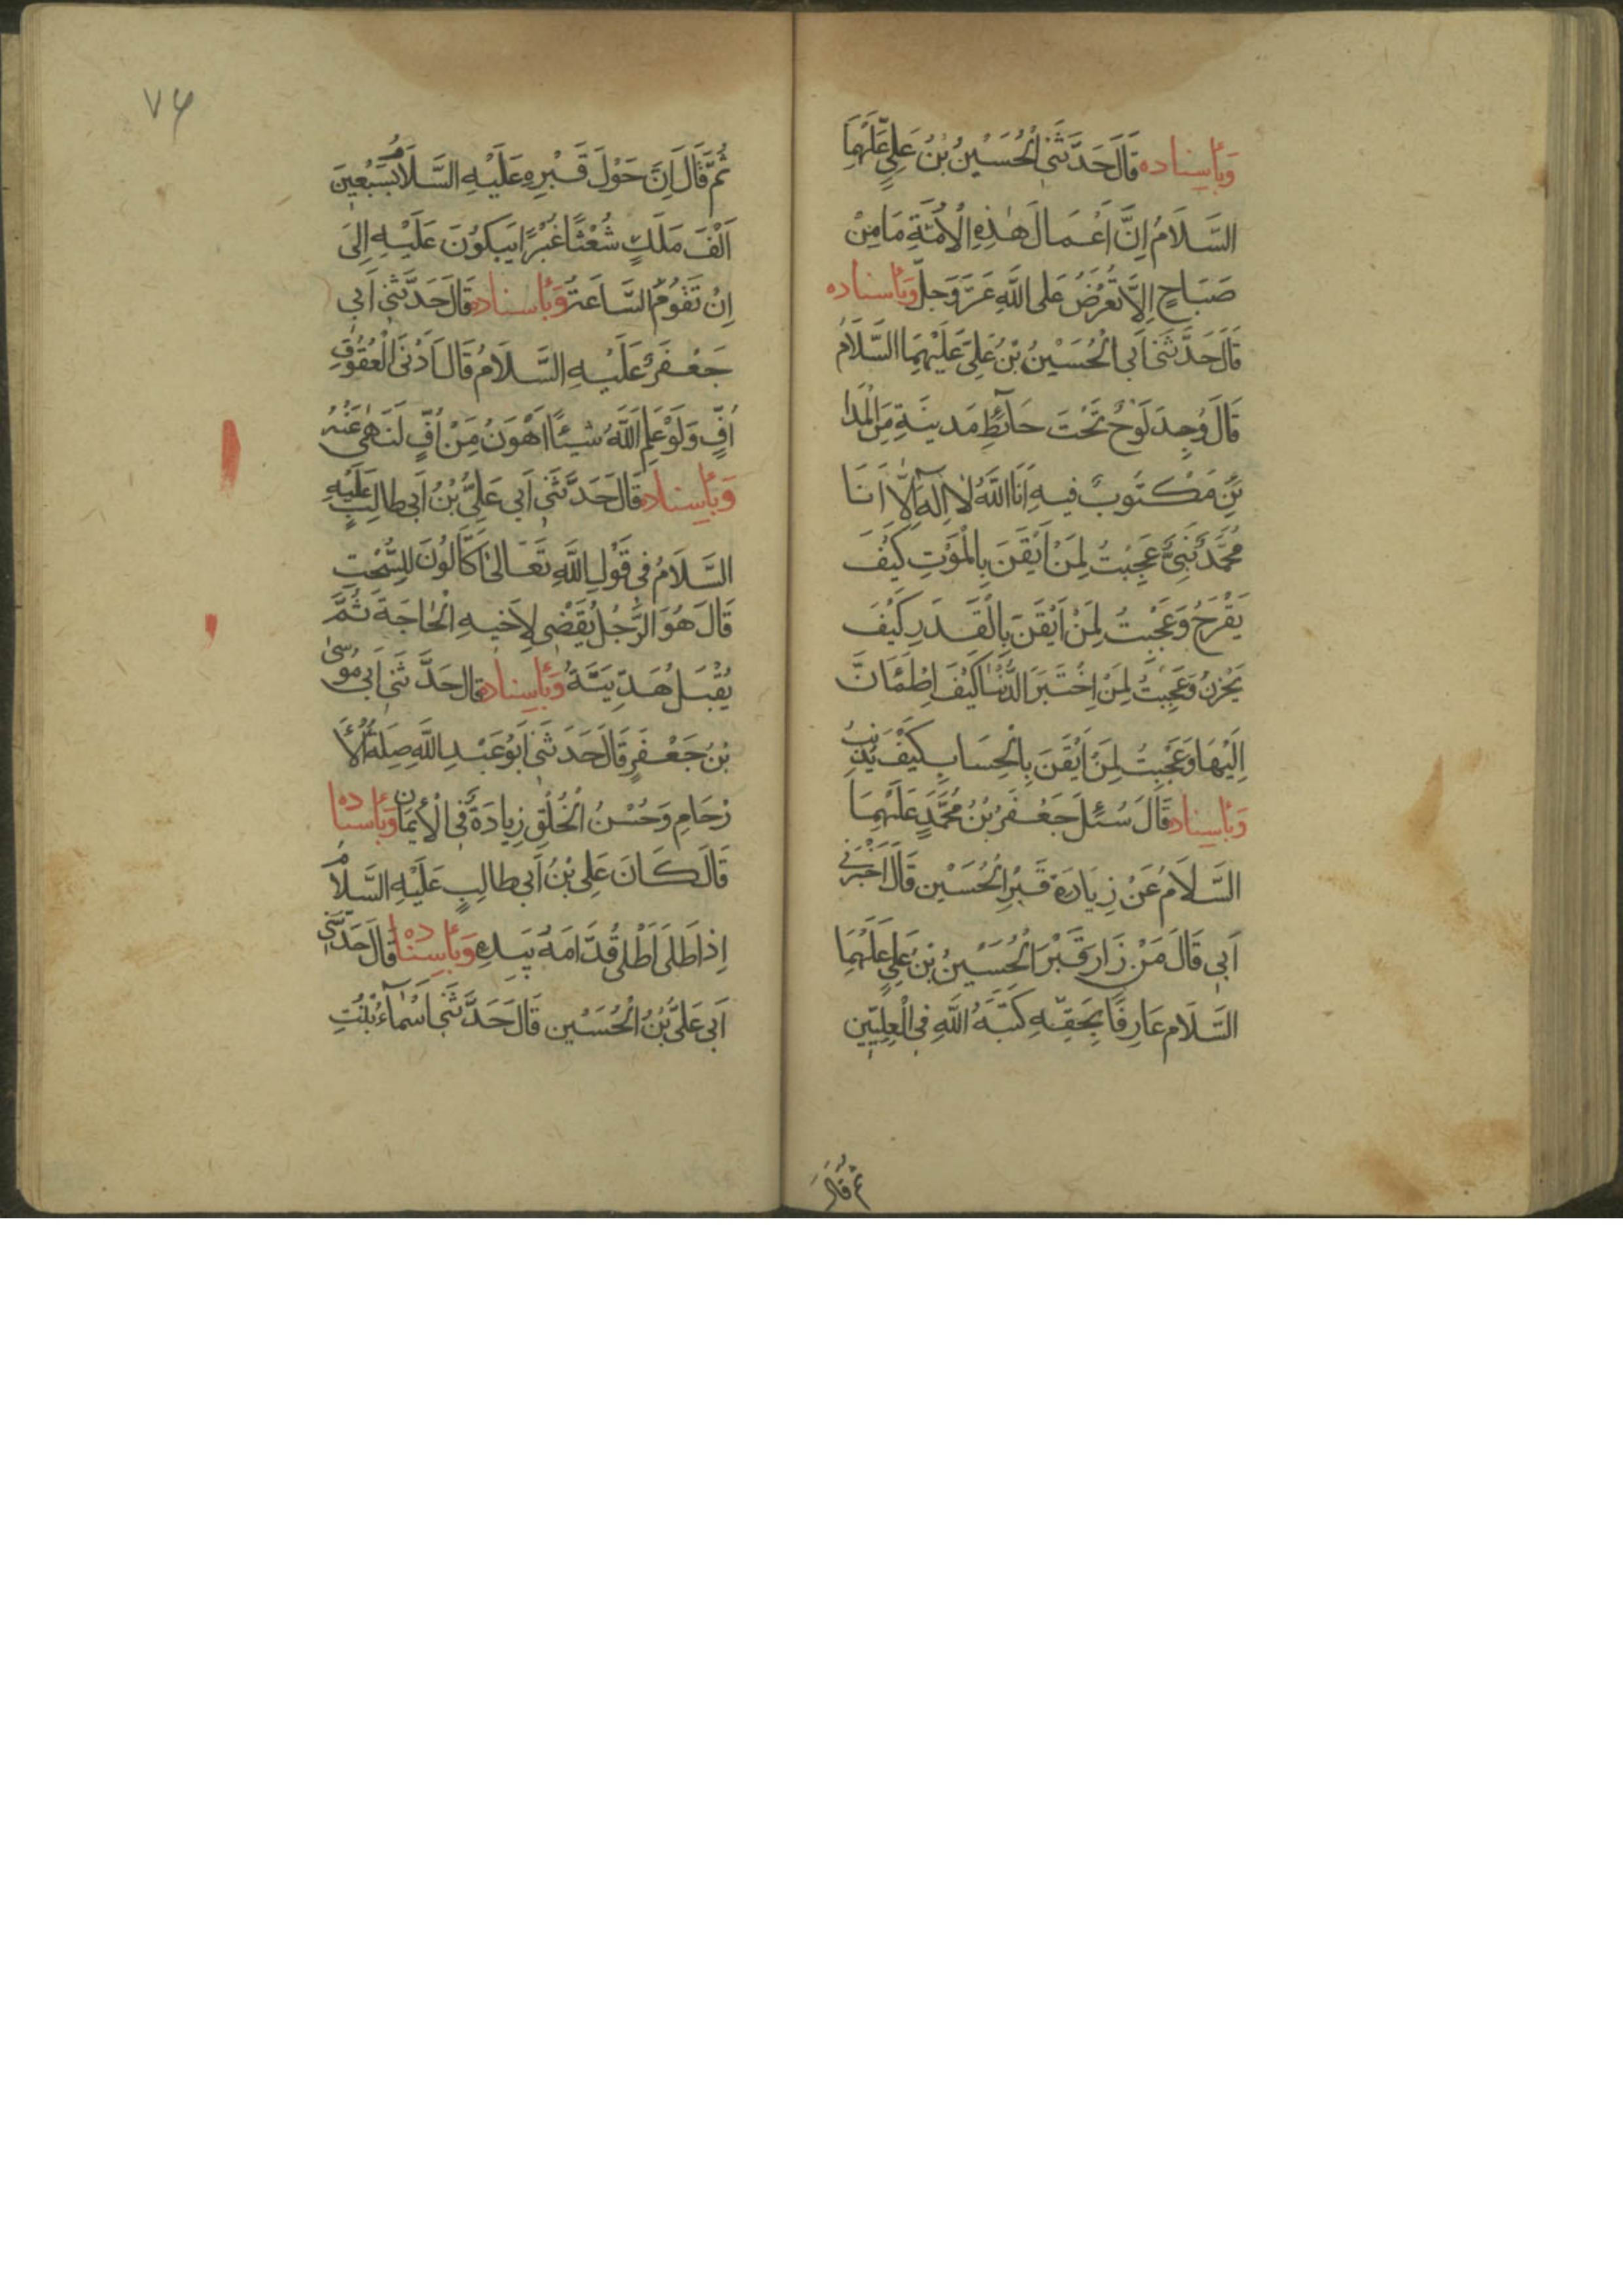 وَبِأسِناده قَالَ حَدَّثَنِي الْحُسَيْنُ بْنُ عَلِيٍّ عَلَيْهِمَا
السَّلَامُ اِنَّ اَعْمَالَ هٰذِهِ الْاُمَّةِ مَا مِنْ
صَبَاحٍ اِلَّا تُعْرَضُ عَلَى اللَّهِ عَزَّ وَجَلَّ وَبِأسناده
قَالَ حَدَّثَنِي اَبِي الْحُسَيْنُ بْنُ عَلِيّ عَلَيْهِمَا السَّلَامُ
قَالَ وُجِدَ لَوْحٌ تَحْتَ حَائِطِ مَدينَةٍ مِنَ الْمَدَا
ئِنِ مَكْتُوبٌ فيهِ اَنَا اللَّهُ لَا اِلٰهَ اِلَّا اَنَا
مُحَمَّدٌ نَبِيّ عَجِبْتُ لِمَنْ اَيْقَنَ بِالْمَوْتِ كَيْفَ
يَفْرَحُ وَعَجِبْتُ لِمَنْ اَيْقَنَ بِالْقَدَرِ كَيْفَ
يَحْزِنُ وَعَجِبْتُ لِمَنْ اِخْتَبَرَ الدُّنْيَا كَيْفَ اِطْمَئَانَّ
اِلَيْهَا وَعَجِبْتُ لِمَنْ اَيْقَنَ بِالْحِسَابِ كَيْفَ يُذْنِبُ
وَبِأسِناده قَالَ سُئِلَ جَعْفَرُ بْنُ مُحَمَّدٍ عَلَيْهِمَا
السَّلَامُ عَنْ زِيَارَة قَبْرِ الْحُسَيْنِ قَالَ اَخْبَرَنِي
اَبِي قَالَ مَنْ زَارَ قَبْرَ الْحُسَيْنُ بْنُ عَلِي عَلَيْهِمَا
السَّلَام عَارِفًا بِحَقِّهِ كَتَبَهُ اللَّهِ فِي الْعِلِّيِّين
ثم قَالَ
٧۶
ثُمَّ قَالَ اِنَّ حَوْلَ قَبْرِهِ عَلَيْهِ السَّلَامُ سَبْعِينَ
اَلْفَ مَلَكٍ شُعْثًا غُبْرًا يَبْكُونَ عَلَيْهِ اِلَى
اِنْ تَقُومُ السَّاعَةُ وَبِأسناده قَالَ حَدَّثَنِي اَبِي
جَعْفَرُ عَلَيْهِ السَّلَامُ قَالَ اَدْنَى الْعُقُوقِ
اُفٍّ وَلَوْ عَلِمَ اللَّهُ شَيْئًا اَهْوَنُ مِنْ اُفٍّ لَنَهٰى عَنْهُ
وَبِأسِناده قَالَ حَدَّثَنِي اَبِي عَلِيُّ بْنُ اَبِي طالِبٍ عَلَيْهِ
السَّلَامُ فِي قَوْلِ اللَّهِ تَعَالىٰ اَكَّالُونَ لِلسُّحْتِ
قَالَ هُوَ الرَّجُلُ يُقْضِي لِاَخيهِ الْحَاجَةَ ثُمَّ
يُقْبَلُ هَدِّيَتَهُ وَبِأسِناده قَالَ حَدَّثَنِي اَبِي مُوسىٰ
بْنُ جَعْفَرٍ قَالَ حَدَثَنِي اَبُو عَبْدِ اللَّهِ صِلَةُ الْأَ
رْحَامِ وَحُسْنُ الْخُلْقِ زِيادَةٌ فِي الْأيمَانِ وَبِأسناده
قَالَ كَانَ عَلِي بْنُ اَبِي طالِبٍ عَلَيْهِ السَّلَامُ
اِذَا طَلَى اَطْلَى قُدَّامَهُ بِيَدِهِ وَبِأسِناده قَالَ حَدَّثَنِي
اَبِي عَلِيُّ بْنُ الْحُسَيْنِ قَالَ حَدَّثَنِي اَسْمَاءُ بْنْتِ